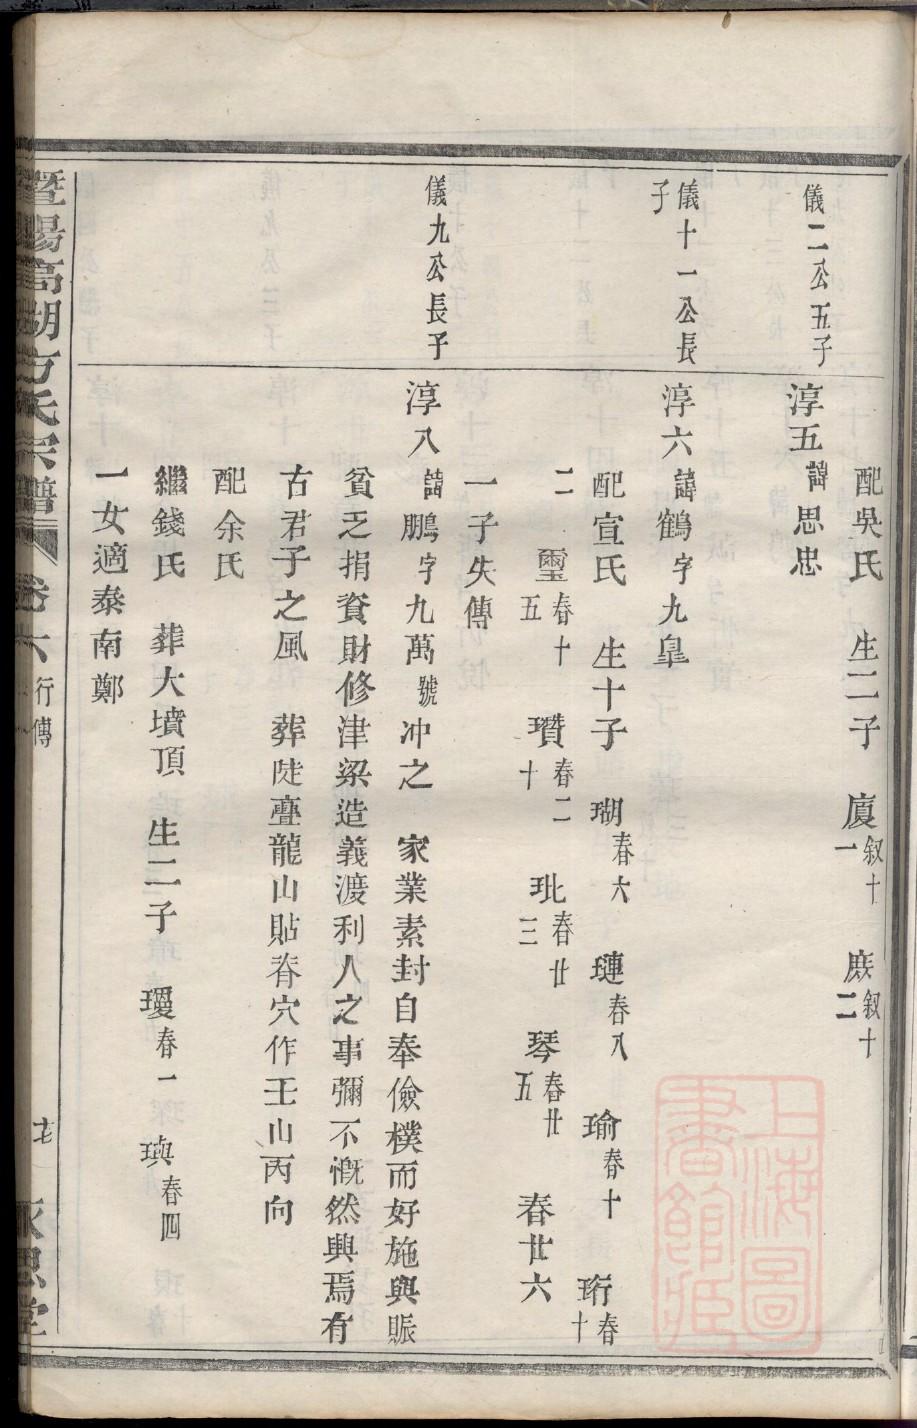 配吳氏　生二子　廈叙十一　庻叙十二
儀二公五子
淳五諱思忠
儀十一公長子
淳六諱鶴字九臯
配宣氏　生十子　瑚春六　璉春八　瑜春十　珩春十二　璽春十五　瓚春二十　玭春廿三　琴春廿五　春廿六
一子失傳
儀九公長子
淳八諱鵬字九萬號冲之　家業素封自奉儉樸而好施與賑
貧乏捐資財修津梁造義渡利人之事彌不慨然興焉有
古君子之風　葬陡亹龍山貼脊穴作壬山丙向
配余氏
繼錢氏　葬大墳頂　生二子　瓊春一　璵春四
一女適泰南鄭
暨陽高湖方氏宗譜　卷六　行傳　永思堂
上海圖書館藏